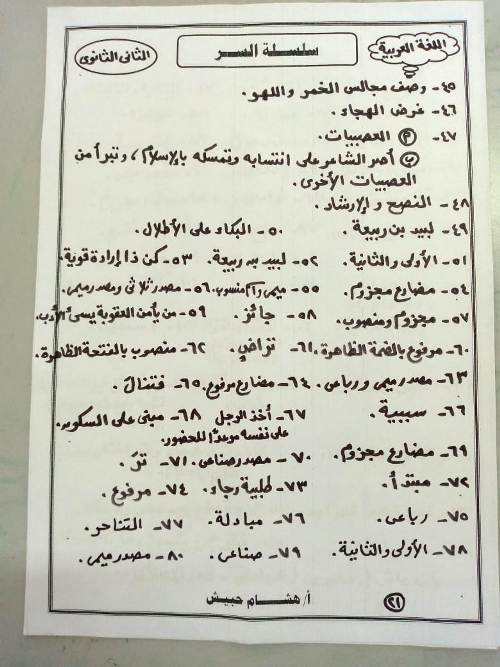 اللغة العربية
سلسلة السر
الثانى الثانوى
٤٥- وصف مجالس الخمر واللهو.
٤٦- غرض الهجاء.
٤٧- (م) العصبيات.
(ب) أصر الشاعر على انتسابه وتمسكه بالإسلام، وتبرأ من
العصبيات الأخرى.
٤٨- النصح والإرشاد.
٤٩- لبيد بن ربيعة. ٥٠- البكاء على الأطلال.
٥١- الأولى والثانية. ٥٢- لبيد بن ربيعة. ٥٣- كن ذا إرادة قوية.
٥٤- مضارع مجزوم. ٥٥- ميمى واسم منسوب. ٥٦- مصدر ثلاثى ومصدر ميمى.
٥٧- مجزوم ومنصوب. ٥٨- جائز. ٥٩- من يأمن العقوبة يسئ الأدب.
٦٠- مرفوع بالضمة الظاهرة. ٦١- تراضٍ. ٦٢- منصوب بالفتحة الظاهرة.
٦٣- مصدر ميمى ورباعى. ٦٤- مضارع مرفوع. ٦٥- فتنال.
٦٦- سببية. ٦٧- أخذ الرجل ٦٨- مبنى على السكون.
على نفسه موعدًا للحضور.
٦٩- مضارع مجزوم. ٧٠- مصدر صناعى. ٧١- ترَ.
٧٢- مبتدأ. ٧٣- طلبية رجاء. ٧٤- مرفوع.
٧٥- رباعى. ٧٦- مبادلة. ٧٧- التناحر.
٧٨- الأولى والثانية. ٧٩- صناعى. ٨٠- مصدر ميمى.
٢١
أ/ هشام حبيش